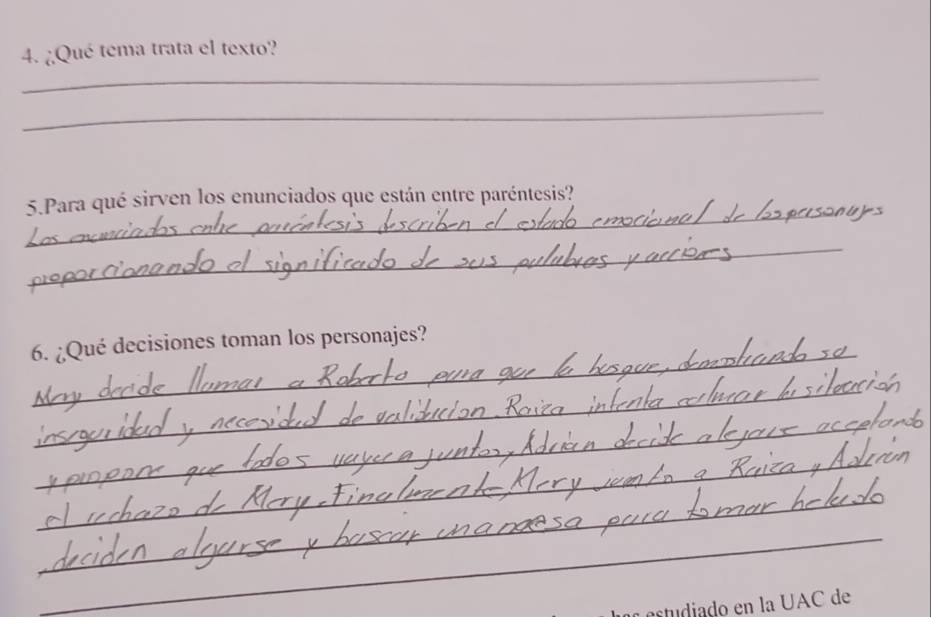 4. ¿Qué tema trata el texto?
5.Para qué sirven los enunciados que están entre paréntesis?
Los enunciados entre paréntesis describen el estado emocional de los personajes
proporcionando el significado de sus palabras y acciones
6. ¿Qué decisiones toman los personajes?
Mery decide llamar a Roberto para que la busque, demostrando su
inseguridad y necesidad de validacion. Raiza intenta calmar la situación
y propone que todos vayan a juntos, Adrián decide alejarse aceptando
el rechazo de Mery. Finalmente, Mery junto a Raiza y Adrián
deciden alejarse y buscar una mesa para tomar helado
estudiado en la UAC de